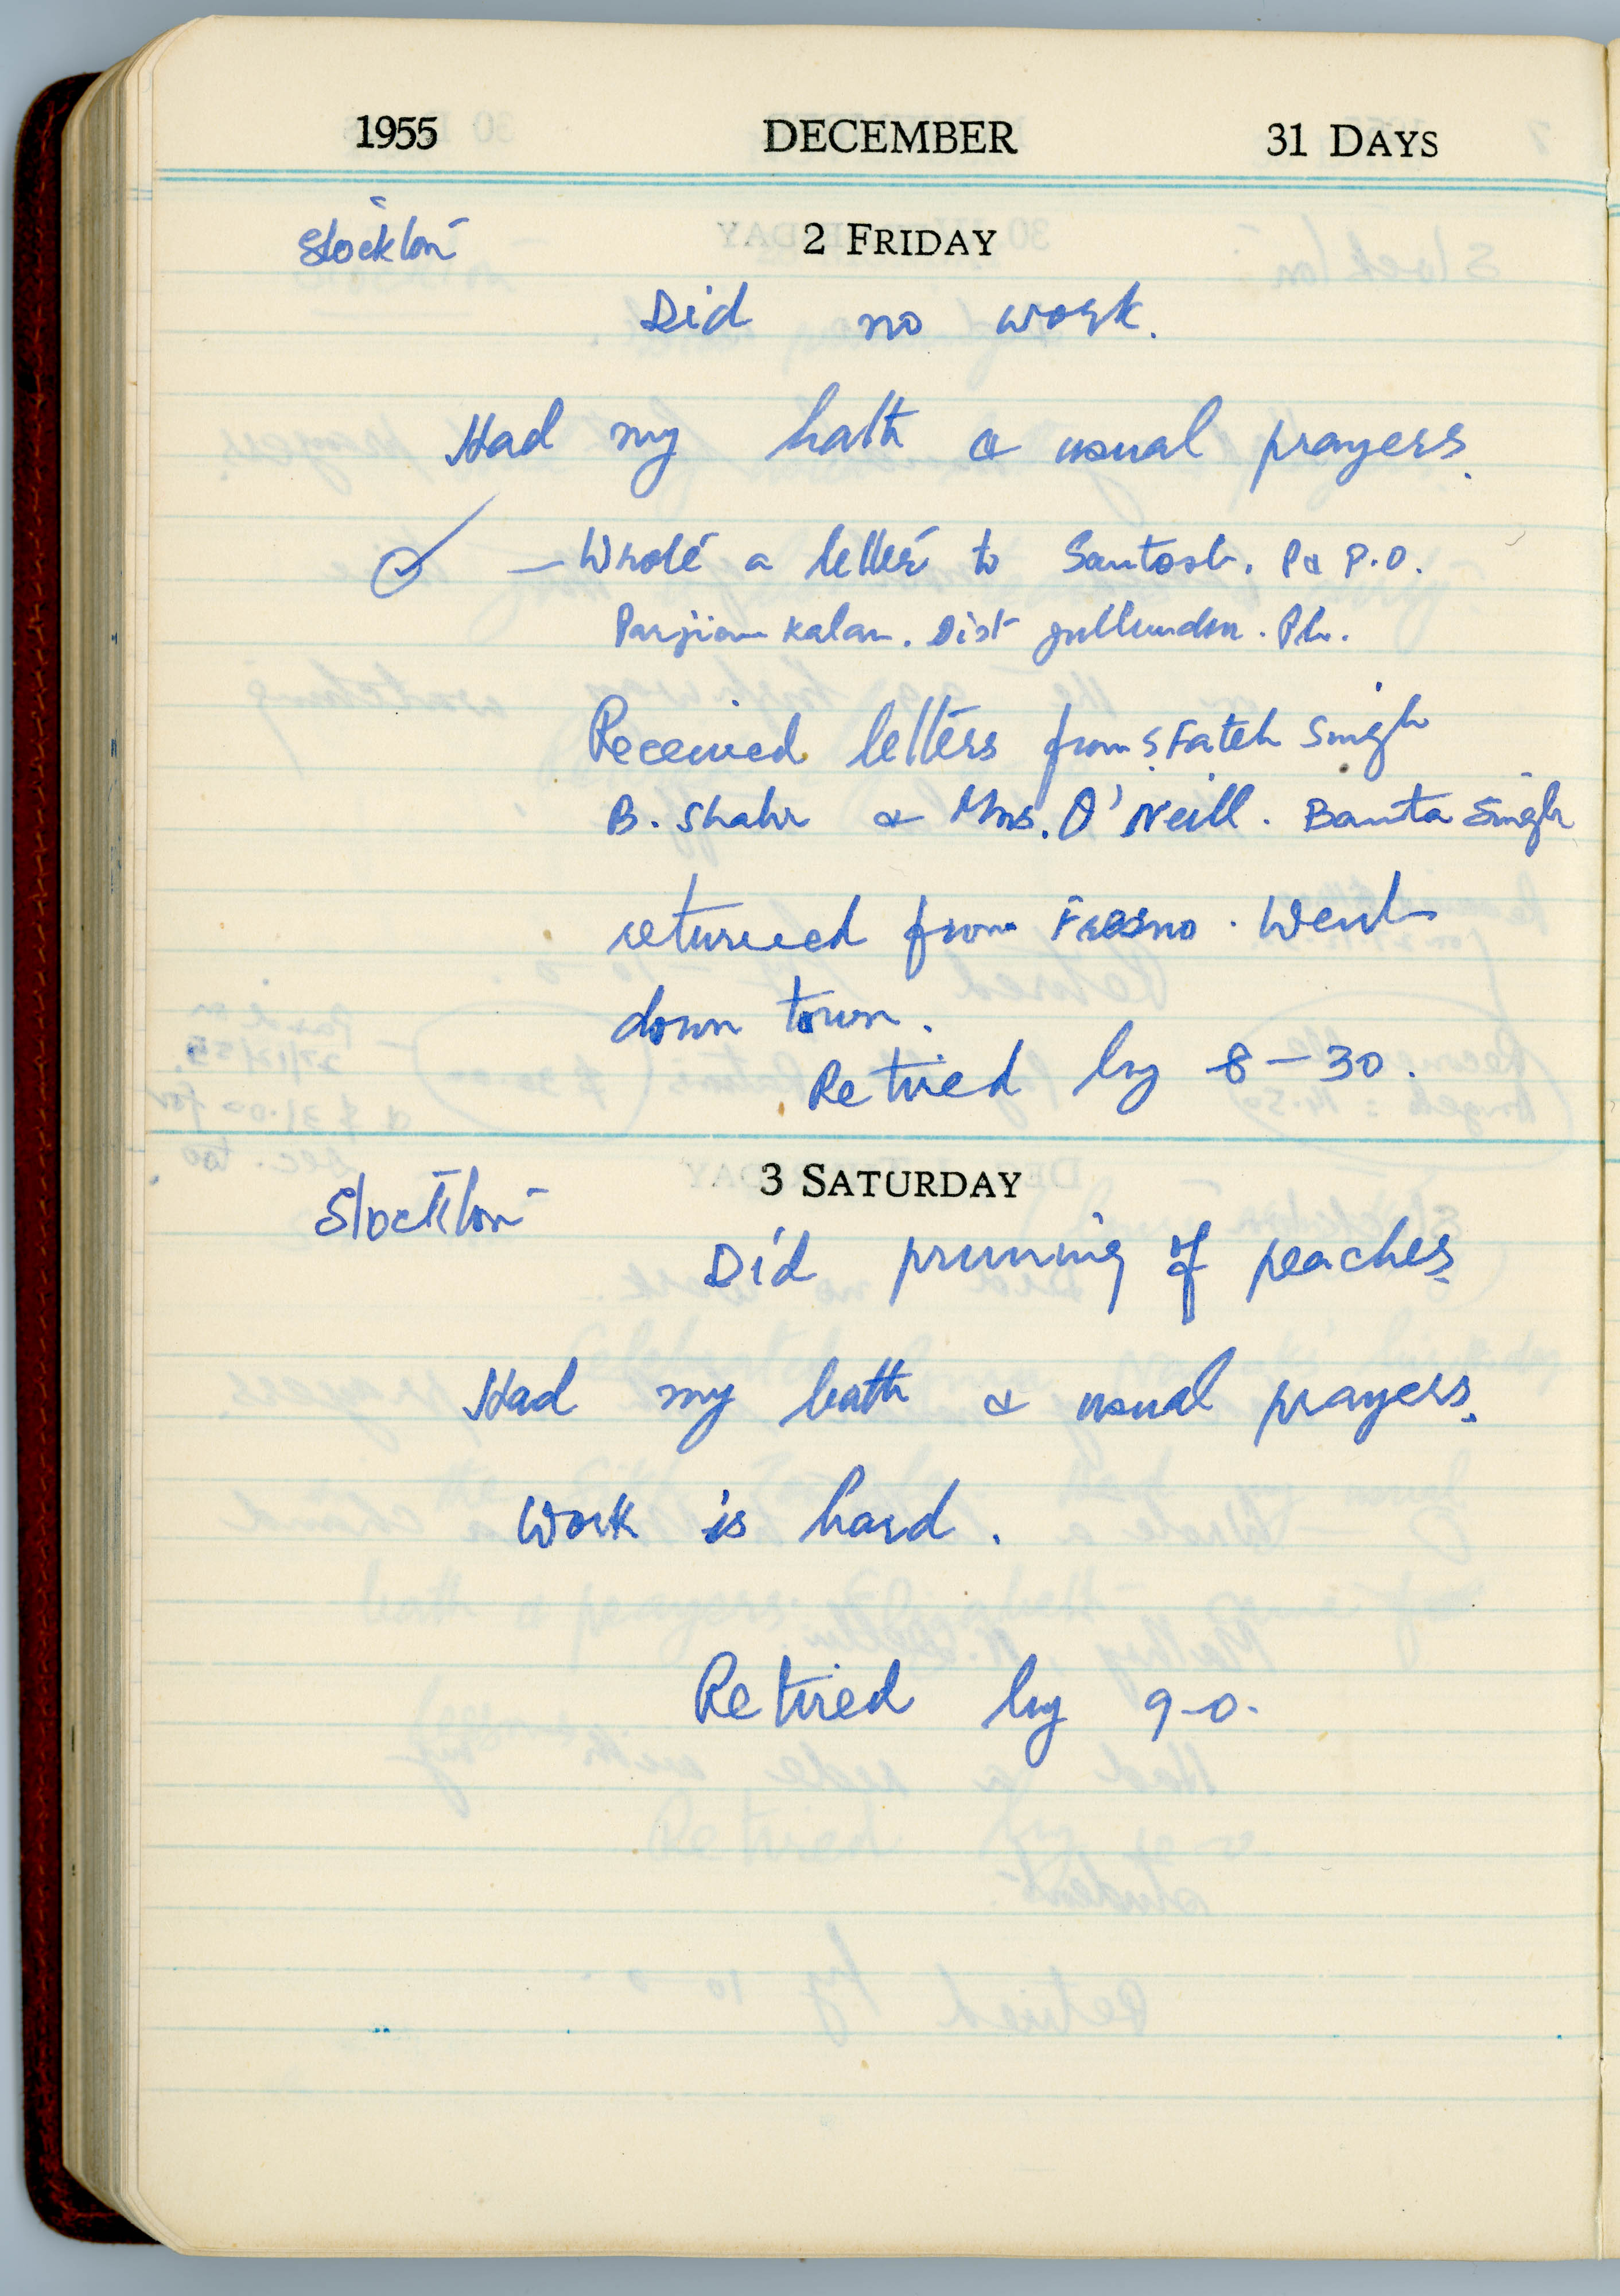 1955 DECEMBER 31 DAYS
Stockton 2 FRIDAY
Did no work.
Had my bath & usual prayers.
— Wrote a letter to Santosh. P & P.O.
Parjian Kalan. Dist Jullundur. Pb.
Received letters from S. Fateh Singh
B. Shahr & Mrs. O'Neill. Banta Singh
returned from Fresno. Went
down town.
Retired by 8-30.
3 SATURDAY
Stockton
Did pruning of peaches.
Had my bath & usual prayers.
Work is hard.
Retired by 9-0.